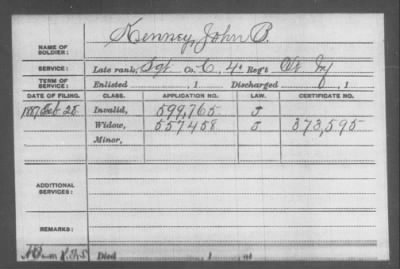 NAME OF SOLDIER: Kenney, John P.
SERVICE: Late rank, Sgt Co. C, 4" Reg't
TERM OF SERVICE: Enlisted , 1 Discharged , 1
DATE OF FILING. CLASS. APPLICATION NO. LAW. CERTIFICATE NO.
1887 Feb 25 Invalid, 599,765 J
Widow, 557458 J 373,595
Minor,
ADDITIONAL SERVICES:
REMARKS:
Died , 1 , at